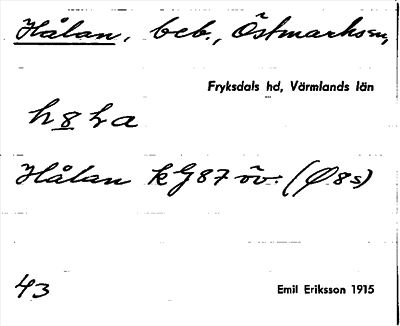 Hålan, beb., Östmarks sn,
Fryksdals hd, Värmlands län
Hålan kG87 öv. (Ø 8s)
43
Emil Eriksson 1915